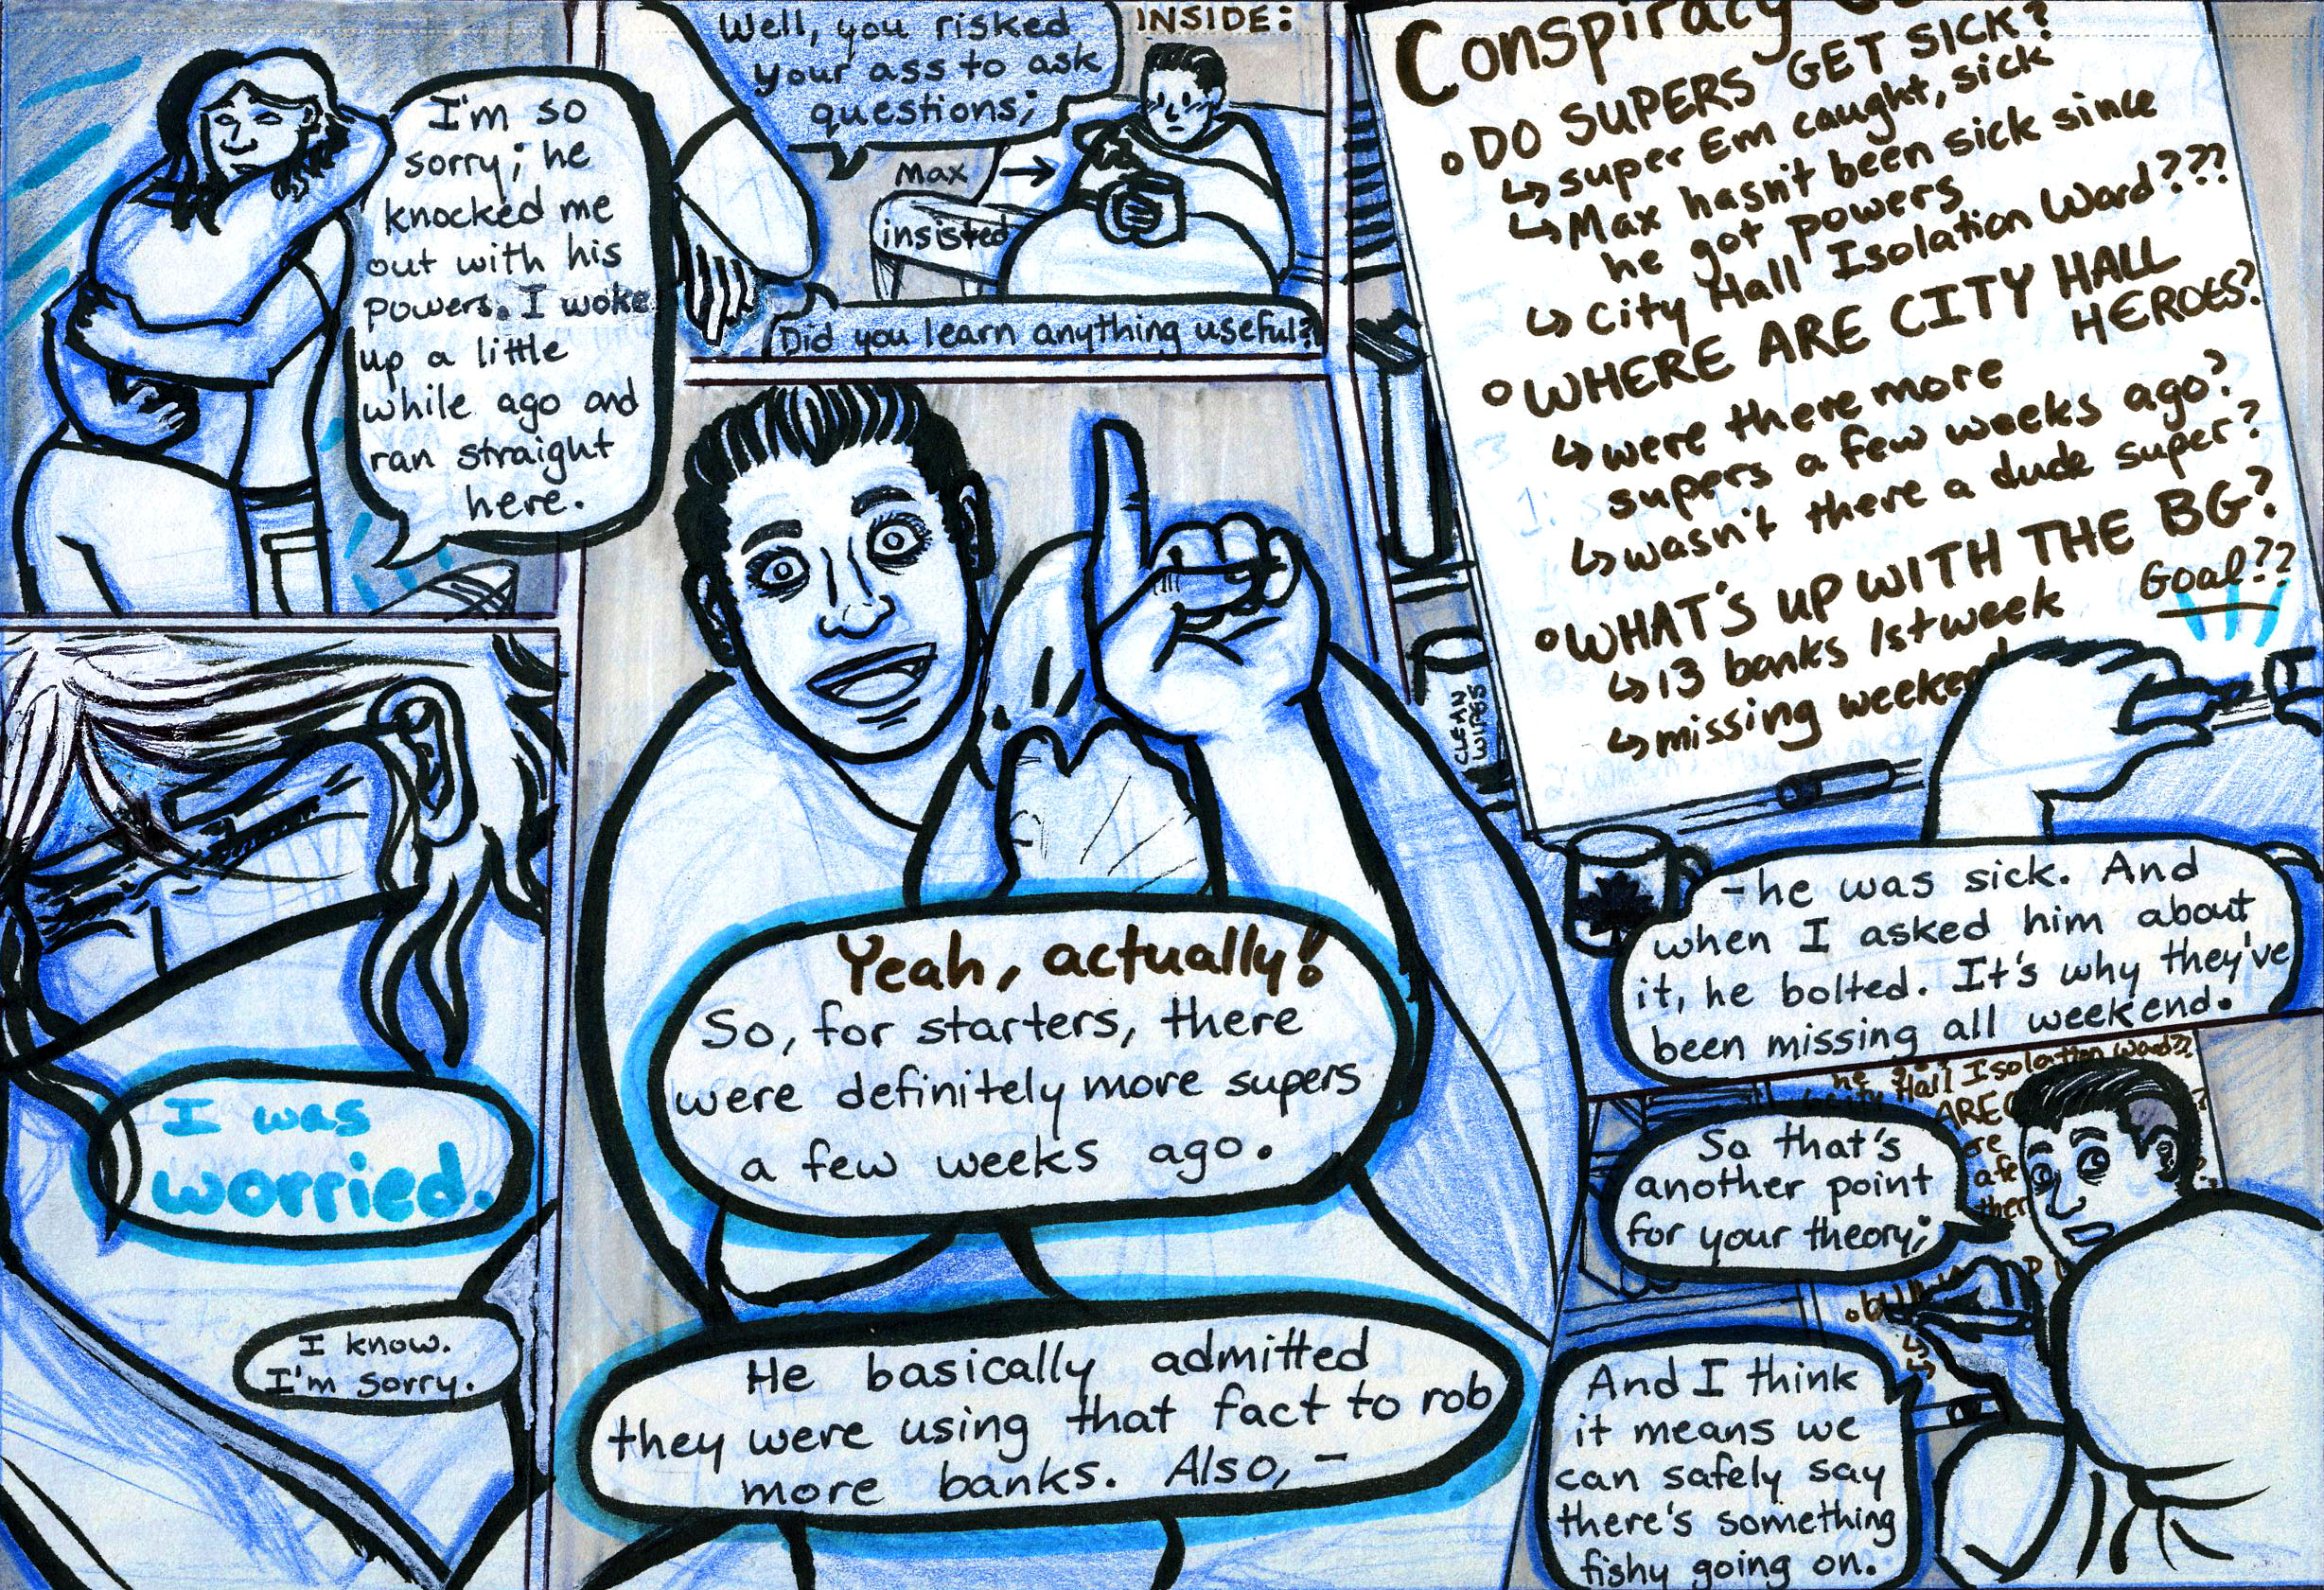 I'm so
sorry; he
knocked me
out with his
powers. I woke
up a little
while ago and
ran straight
here.
I was
worried.
I know.
I'm sorry.
Well, you risked
your ass to ask
questions;
INSIDE:
Max →
insisted
Did you learn anything useful?
Yeah, actually!
So, for starters, there
were definitely more supers
a few weeks ago.
He basically admitted
they were using that fact to rob
more banks. Also, -
Conspiracy
o DO SUPERS GET SICK?
↳ super Em caught, sick
↳ Max hasn't been sick since
he got powers
↳ City Hall Isolation Ward???
o WHERE ARE CITY HALL
HEROES?
↳ were there more
supers a few weeks ago?
↳ wasn't there a dude super?
o WHAT'S UP WITH THE BG?
Goal??
↳ 13 banks 1st week
↳ missing weekend
CLEAN
WIPES
- he was sick. And
when I asked him about
it, he bolted. It's why they've
been missing all weekend.
he
City Hall Isolation Ward??
ARE
So that's
another point
for your theory;
And I think
it means we
can safely say
there's something
fishy going on.